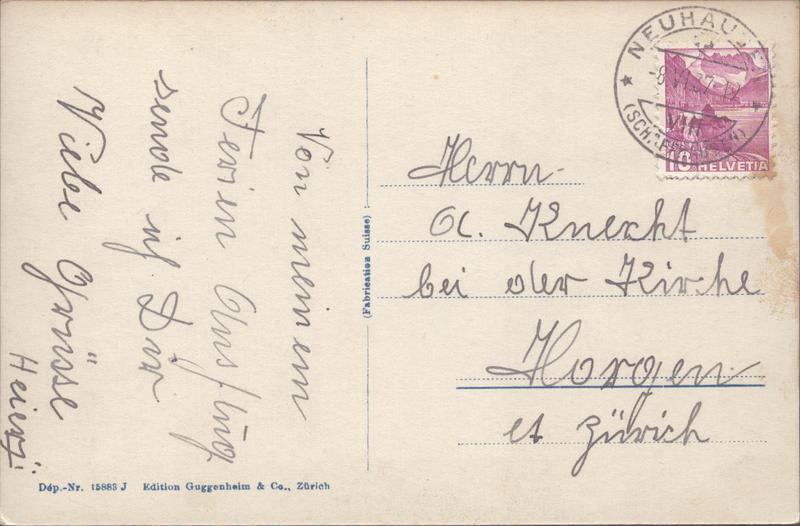 Von meinem
Ferien Ausflug
sende ich Dir
Viele Grüsse
Heinz.
(Fabrication Suisse)
Herrn
A. Knecht
bei der Kirche
Horgen
ct Zürich
NEUHAUSEN
(SCHAFFHAUSEN)
10 HELVETIA
Dép.-Nr. 15883 J Edition Guggenheim & Co., Zürich